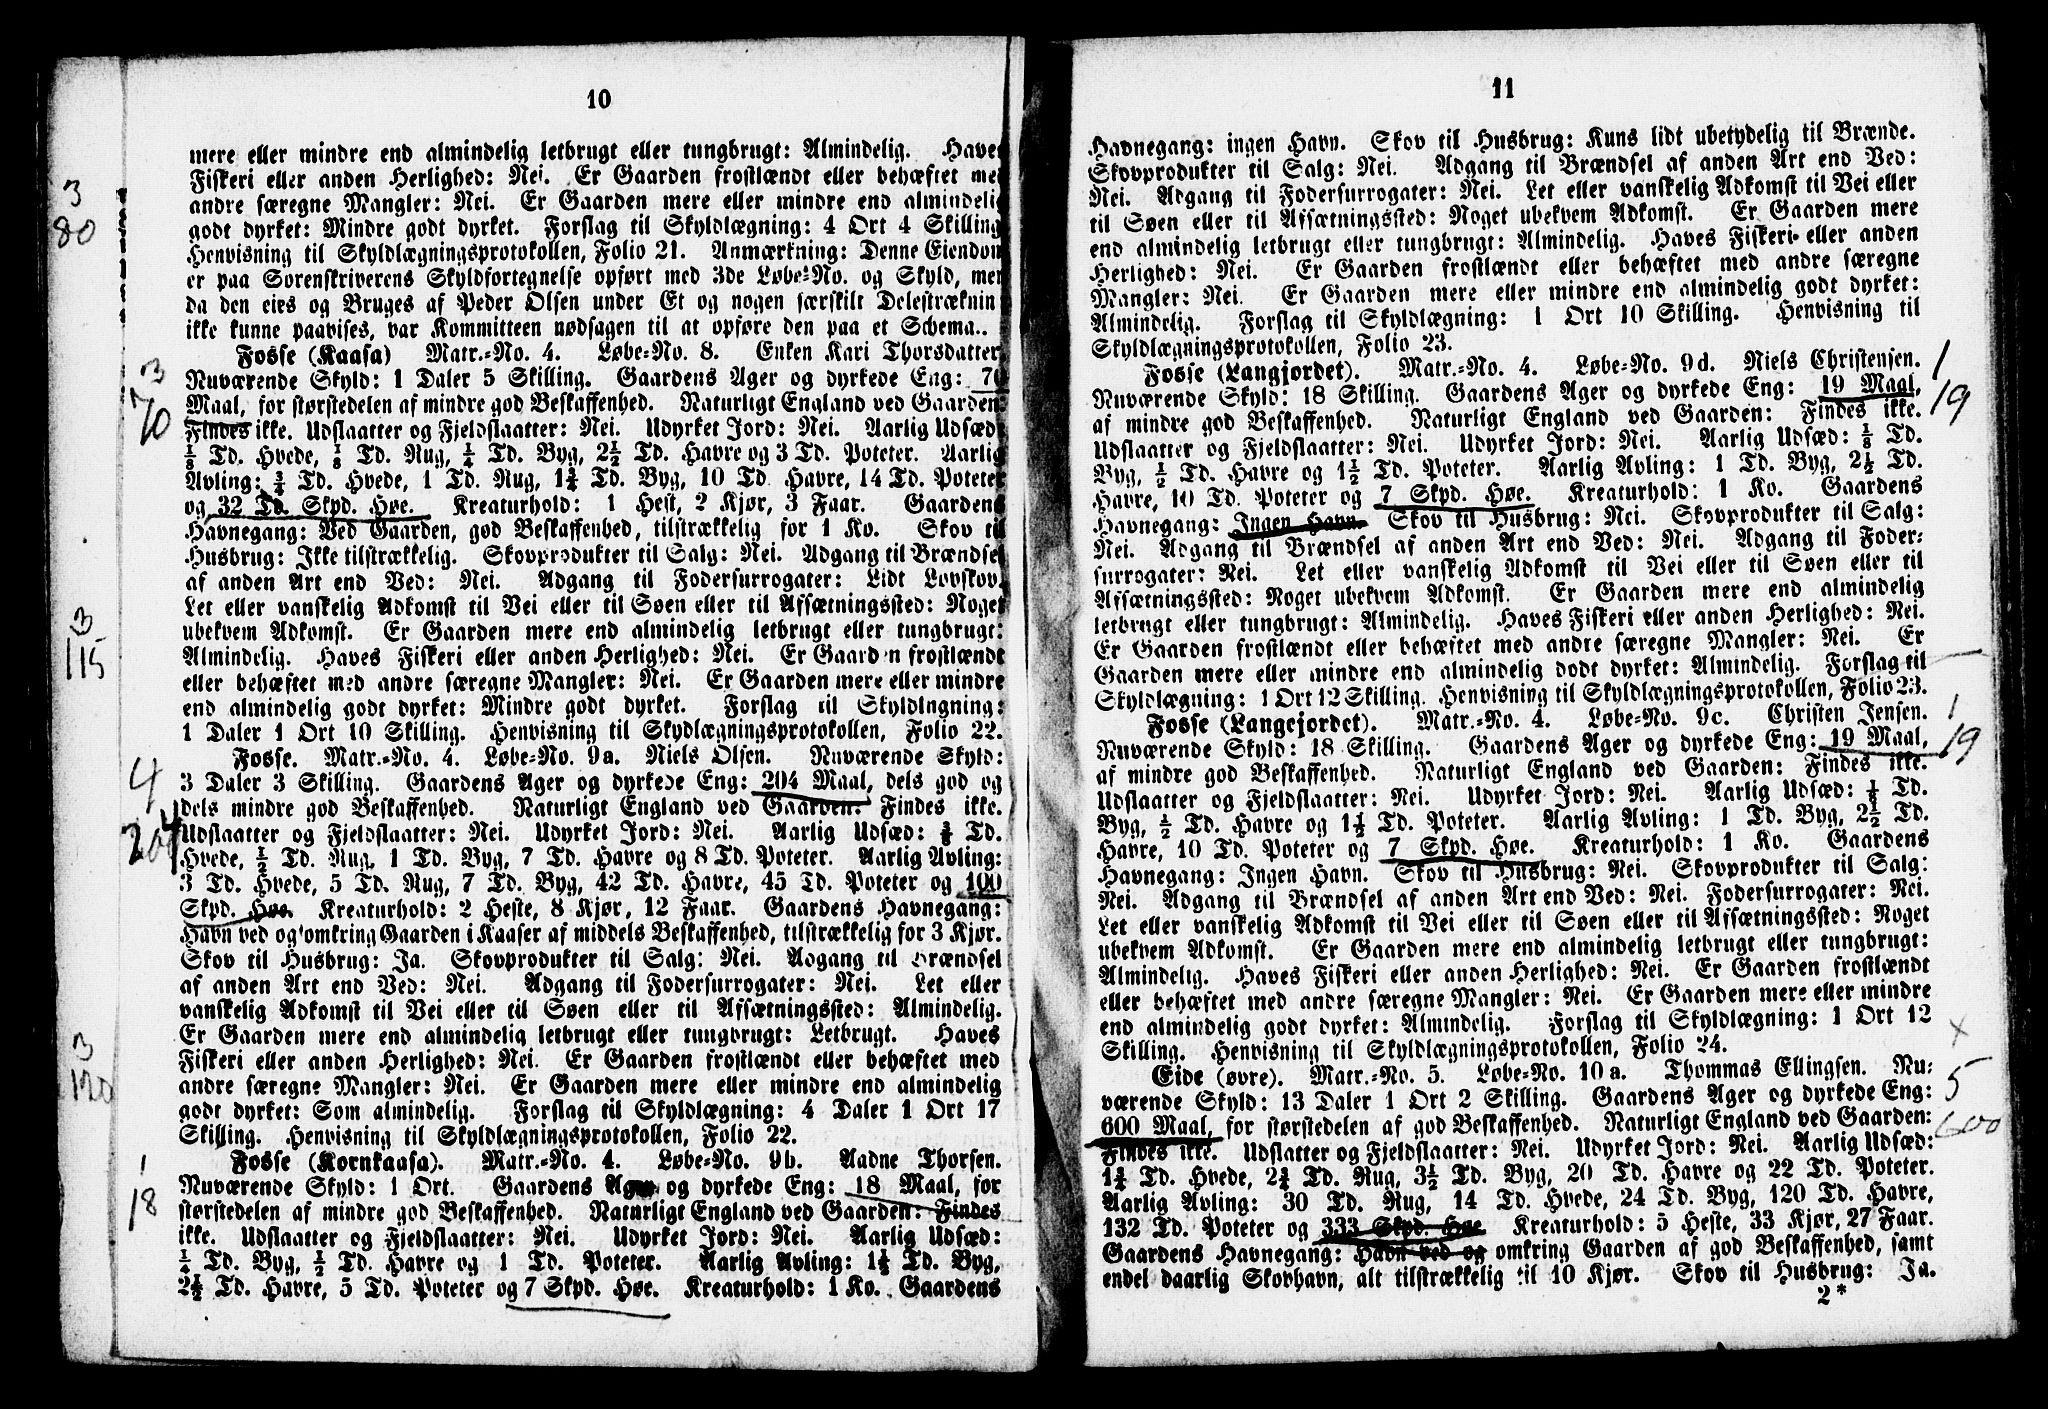 10
mere eller mindre end almindelig letbrugt eller tungbrugt: Almindelig. Haves
Fiskeri eller anden Herlighed: Nei. Er Gaarden frostlændt eller behæftet med
andre særegne Mangler: Nei. Er Gaarden mere eller mindre end almindelig
godt dyrket: Mindre godt dyrket. Forslag til Skyldlægning: 4 Ort 4 Skilling
Henvisning til Skyldlægningsprotokollen, Folio 21. Anmærkning: Denne Eiendom
er paa Sorenskriverens Skyldfortegnelse opført med 3de Løbe-No. og Skyld, men
da den eies og Bruges af Peder Olsen under Et og nogen særskilt Delestrækning
ikke kunne paavises, var Kommitteen nødsagen til at opføre den paa et Schema..
Fosse (Kaasa) Matr.-No. 4. Løbe-No. 8. Enken Kari Thorsdatter.
Nuværende Skyld: 1 Daler 5 Skilling. Gaardens Ager og dyrkede Eng: 70
Maal, for størstedelen af mindre god Beskaffenhed. Naturligt England ved Gaarden:
Findes ikke. Udslaatter og Fjeldslaatter: Nei. Udyrket Jord: Nei. Aarlig Udsæd:
⅛ Td. Hvede, ⅛ Td. Rug, ¼ Td. Byg, 2½ Td. Havre og 3 Td. Poteter. Aarlig
Avling: ¾ Td. Hvede, 1 Td. Rug, 1¾ Td. Byg, 10 Td. Havre, 14 Td. Poteter
og 32 Td. Skpd. Høe. Kreaturhold: 1 Hest, 2 Kjør, 3 Faar. Gaardens
Havnegang: Ved Gaarden, god Beskaffenhed, tilstrækkelig for 1 Ko. Skov til
Husbrug: Ikke tilstrækkelig. Skovprodukter til Salg: Nei. Adgang til Brændsel
af anden Art end Ved: Nei. Adgang til Fodersurrogater: Lidt Lovskov.
Let eller vanskelig Adkomst til Vei eller til Søen eller til Afsætningssted: Noget
ubekvem Adkomst. Er Gaarden mere end almindelig letbrugt eller tungbrugt:
Almindelig. Haves Fiskeri eller anden Herlighed: Nei. Er Gaarden frostlændt
eller behæftet med andre særegne Mangler: Nei. Er Gaarden mere eller mindre
end almindelig godt dyrket: Mindre godt dyrket. Forslag til Skyldlngning:
1 Daler 1 Ort 10 Skilling. Henvisning til Skydlægningsprotokollen, Folio 22.
Fosse. Matr.-No. 4. Løbe-No. 9a. Niels Olsen. Nuværende Skyld:
3 Daler 3 Skilling. Gaardens Ager og dyrkede Eng: 204 Maal, dels god og
dels mindre god Beskaffenhed. Naturligt England ved Gaarden: Findes ikke.
Udslaatter og Fjeldslaatter: Nei. Udyrket Jord: Nei. Aarlig Udsæd: Td.
Hvede, ½ Td. Rug, 1 Td. Byg, 7 Td. Havre og 8 Td. Poteter. Aarlig Avling:
3 Td. Hvede, 5 Td. Rug, 7 Td. Byg, 42 Td. Havre, 45 Td. Poteter og 100
Skpd. Høe. Kreaturhold: 2 Heste, 8 Kjør, 12 Faar. Gaardens Havnegang:
Havn ved og omkring Gaarden i Kaaser af middels Beskaffenhed, tilstrækkelig for 3 Kjør.
Skov til Husbrug: Ja. Skovprodukter til Salg: Nei. Adgang til Brændsel
af anden Art end Ved: Nei. Adgang til Fodersurrogater: Nei. Let eller
vanskelig Adkomst til Vei eller til Søen eller til Afsætningssted: Almindelig.
Er Gaarden mere end almindelig letbrugt eller tungbrugt: Letbrugt. Haves
Fiskeri eller anden Herlighed: Nei. Er Gaarden frostlændt eller behæftet med
andre særegne Mangler: Nei. Er Gaarden mere eller mindre end almindelig
godt dyrket: Som almindelig. Forslag til Skyldlægning: 4 Daler 1 Ort 17
Skilling. Henvisning til Skyldlægningsprotokollen, Folio 22.
Fosse (Kornkaasa). Matr.-No. 4. Løbe-No. 9b. Aadne Thorsen.
Nuværende Skyld: 1 Ort. Gaardens Ager og dyrkede Eng: 18 Maal, for
størstedelen af mindre god Beskaffenhed. Naturligt England ved Gaarden: Findes
ikke. Udslaatter og Fjeldslaatter: Nei. Udyrket Jord: Nei. Aarlig Udsæd:
¼ Td. Byg, ½ Td. Havre og 1 Td. Poteter. Aarlig Avling: 1½ Td. Byg,
2½ Td. Havre, 5 Td. Poteter og 7 Skpd. Høe. Kreaturhold: 1 Ko. Gaardens
3
80
3
70
3
115
4
204
3
120
1
18
11
Havnegang: ingen Havn. Skov til Husbrug: Kuns lidt ubetydelig til Brænde.
Skovprodukter til Salg: Nei. Adgang til Brændsel af anden Art end Ved:
Nei. Adgang til Fodersurrogater: Nei. Let eller vanskelig Adkomst til Vei eller
til Søen eller til Afsætningssted: Noget ubekvem Adkomst. Er Gaarden mere
end almindelig letbrugt eller tungbrugt: Almindelig. Haves Fiskeri eller anden
Herlighed: Nei. Er Gaarden frostlændt eller behæftet med andre særegne
Mangler: Nei. Er Gaarden mere eller mindre end almindelig godt dyrket:
Almindelig. Forslag til Skyldlægning: 1 Ort 10 Skilling. Henvisning til
Skyldlægningsprotokollen, Folio 23.
Fosse (Langjordet). Matr.-No. 4. Løbe-No. 9d. Niels Christensen.
Nuværende Skyld: 18 Skilling. Gaardens Ager og dyrkede Eng: 19 Maal,
af mindre god Beskaffenhed. Naturligt England ved Gaarden: Findes ikke.
Udslaatter og Fjeldslaatter: Nei. Udyrket Jord: Nei. Aarlig Udsæd: ⅛ Td.
Byg, ½ Td. Havre og 1½ Td. Poteter. Aarlig Avling: 1 Td. Byg, 2½ Td.
Havre, 10 Td. Poteter og 7 Skpd. Høe. Kreaturhold: 1 Ko. Gaardens
Havnegang: Ingen Havn. Skov til Husbrug: Nei. Skovprodukter til Salg:
Nei. Adgang til Brændsel af anden Art end Ved: Nei. Adgang til Foder-
surrogater: Nei. Let eller vanskelig Adkomst til Vei eller til Søen eller til
Afsætningssted: Noget ubekvem Adkomst. Er Gaarden mere end almindelig
letbrugt eller tungbrugt: Almindelig. Haves Fiskeri eller anden Herlighed: Nei.
Er Gaarden frostlændt eller behæftet med andre særegne Mangler: Nei. Er
Gaarden mere eller mindre end almindelig dodt dyrket: Almindelig. Forslag til
Skyldlægning: 1 Ort 12 Skilling. Henvisning til Skyldlægningsprotokollen, Folio 23.
Fosse (Langejordet). Matr.-No. 4. Løbe-No. 9c. Christen Jensen.
Nuværende Skyld: 18 Skilling. Gaardens Ager og dyrkede Eng: 19 Maal,
af mindre god Beskaffenhed. Naturligt England ved Gaarden: Findes ikke.
Udslaatter og Fjeldslaatter: Nei. Udyrket Jord: Nei. Aarlig Udsæd: ⅛ Td.
Byg, ½ Td. Havre og 1½ Td. Poteter. Aarlig Avling: 1 Td. Byg, 2½ Td.
Havre, 10 Td. Poteter og 7 Skpd. Høe. Kreaturhold: 1 Ko. Gaardens
Havnegang: Ingen Havn. Skov til Husbrug: Nei. Skovprodukter til Salg:
Nei. Adgang til Brændsel af anden Art end Ved: Nei. Fodersurrogater: Nei.
Let eller vanskelig Adkomst til Vei eller til Søen eller til Afsætningssted: Noget
ubekvem Adkomst. Er Gaarden mere end almindelig letbrugt eller tungbrugt:
Almindelig. Haves Fiskeri eller anden Herlighed: Nei. Er Gaarden frostlændt
eller behæftet med andre særegne Mangler: Nei. Er Gaarden mere eller mindre
end almindelig godt dyrket: Almindelig. Forslag til Skyldlægning: 1 Ort 12
Skilling. Henvisning til Skyldlægningsprotokollen, Folio 24.
Eide (øvre). Matr.-No. 5. Løbe-No. 10a. Thommas Ellingsen. Nu-
værende Skyld: 13 Daler 1 Ort 2 Skilling. Gaardens Ager og dyrkede Eng:
600 Maal, for størstedelen af god Beskaffenhed. Naturligt England ved Gaarden:
Findes ikke. Udslatter og Fjeldslaatter: Nei. Udyrket Jord: Nei. Aarlig Udsæd:
1¾ Td. Hvede, 2¾ Td. Rug, 3½ Td. Byg, 20 Td. Havre og 22 Td. Poteter.
Aarlig Avling: 30 Td. Rug, 14 Td. Hvede, 24 Td. Byg, 120 Td. Havre,
132 Td. Poteter og 333 Skpd. Høe Kreaturhold: 5 Heste, 33 Kjør, 27 Faar.
Gaardens Havnegang: Havn ved og omkring Gaarden af god Beskaffenhed, samt
endel daarlig Skovhavn, alt tilstrækkelig til 10 Kjør. Skov til Husbrug: Ja.
2*
1
19
1
19
x
5
600